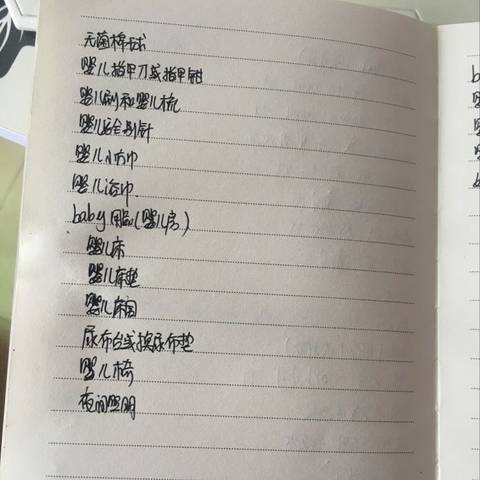 无菌棉球
婴儿指甲刀或指甲钳
婴儿刷和婴儿梳
婴儿安全别针
婴儿小方巾
婴儿浴巾
baby用品(婴儿房)
婴儿床
婴儿床垫
婴儿床围
尿布台或换尿布垫
婴儿椅
夜间照明
b